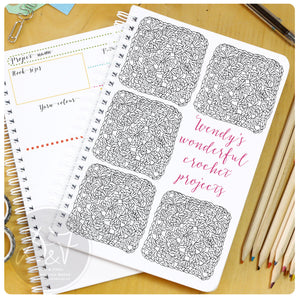 Project name
Hook sizes
Yarn colour
Wendy's
wonderful
crochet
projects